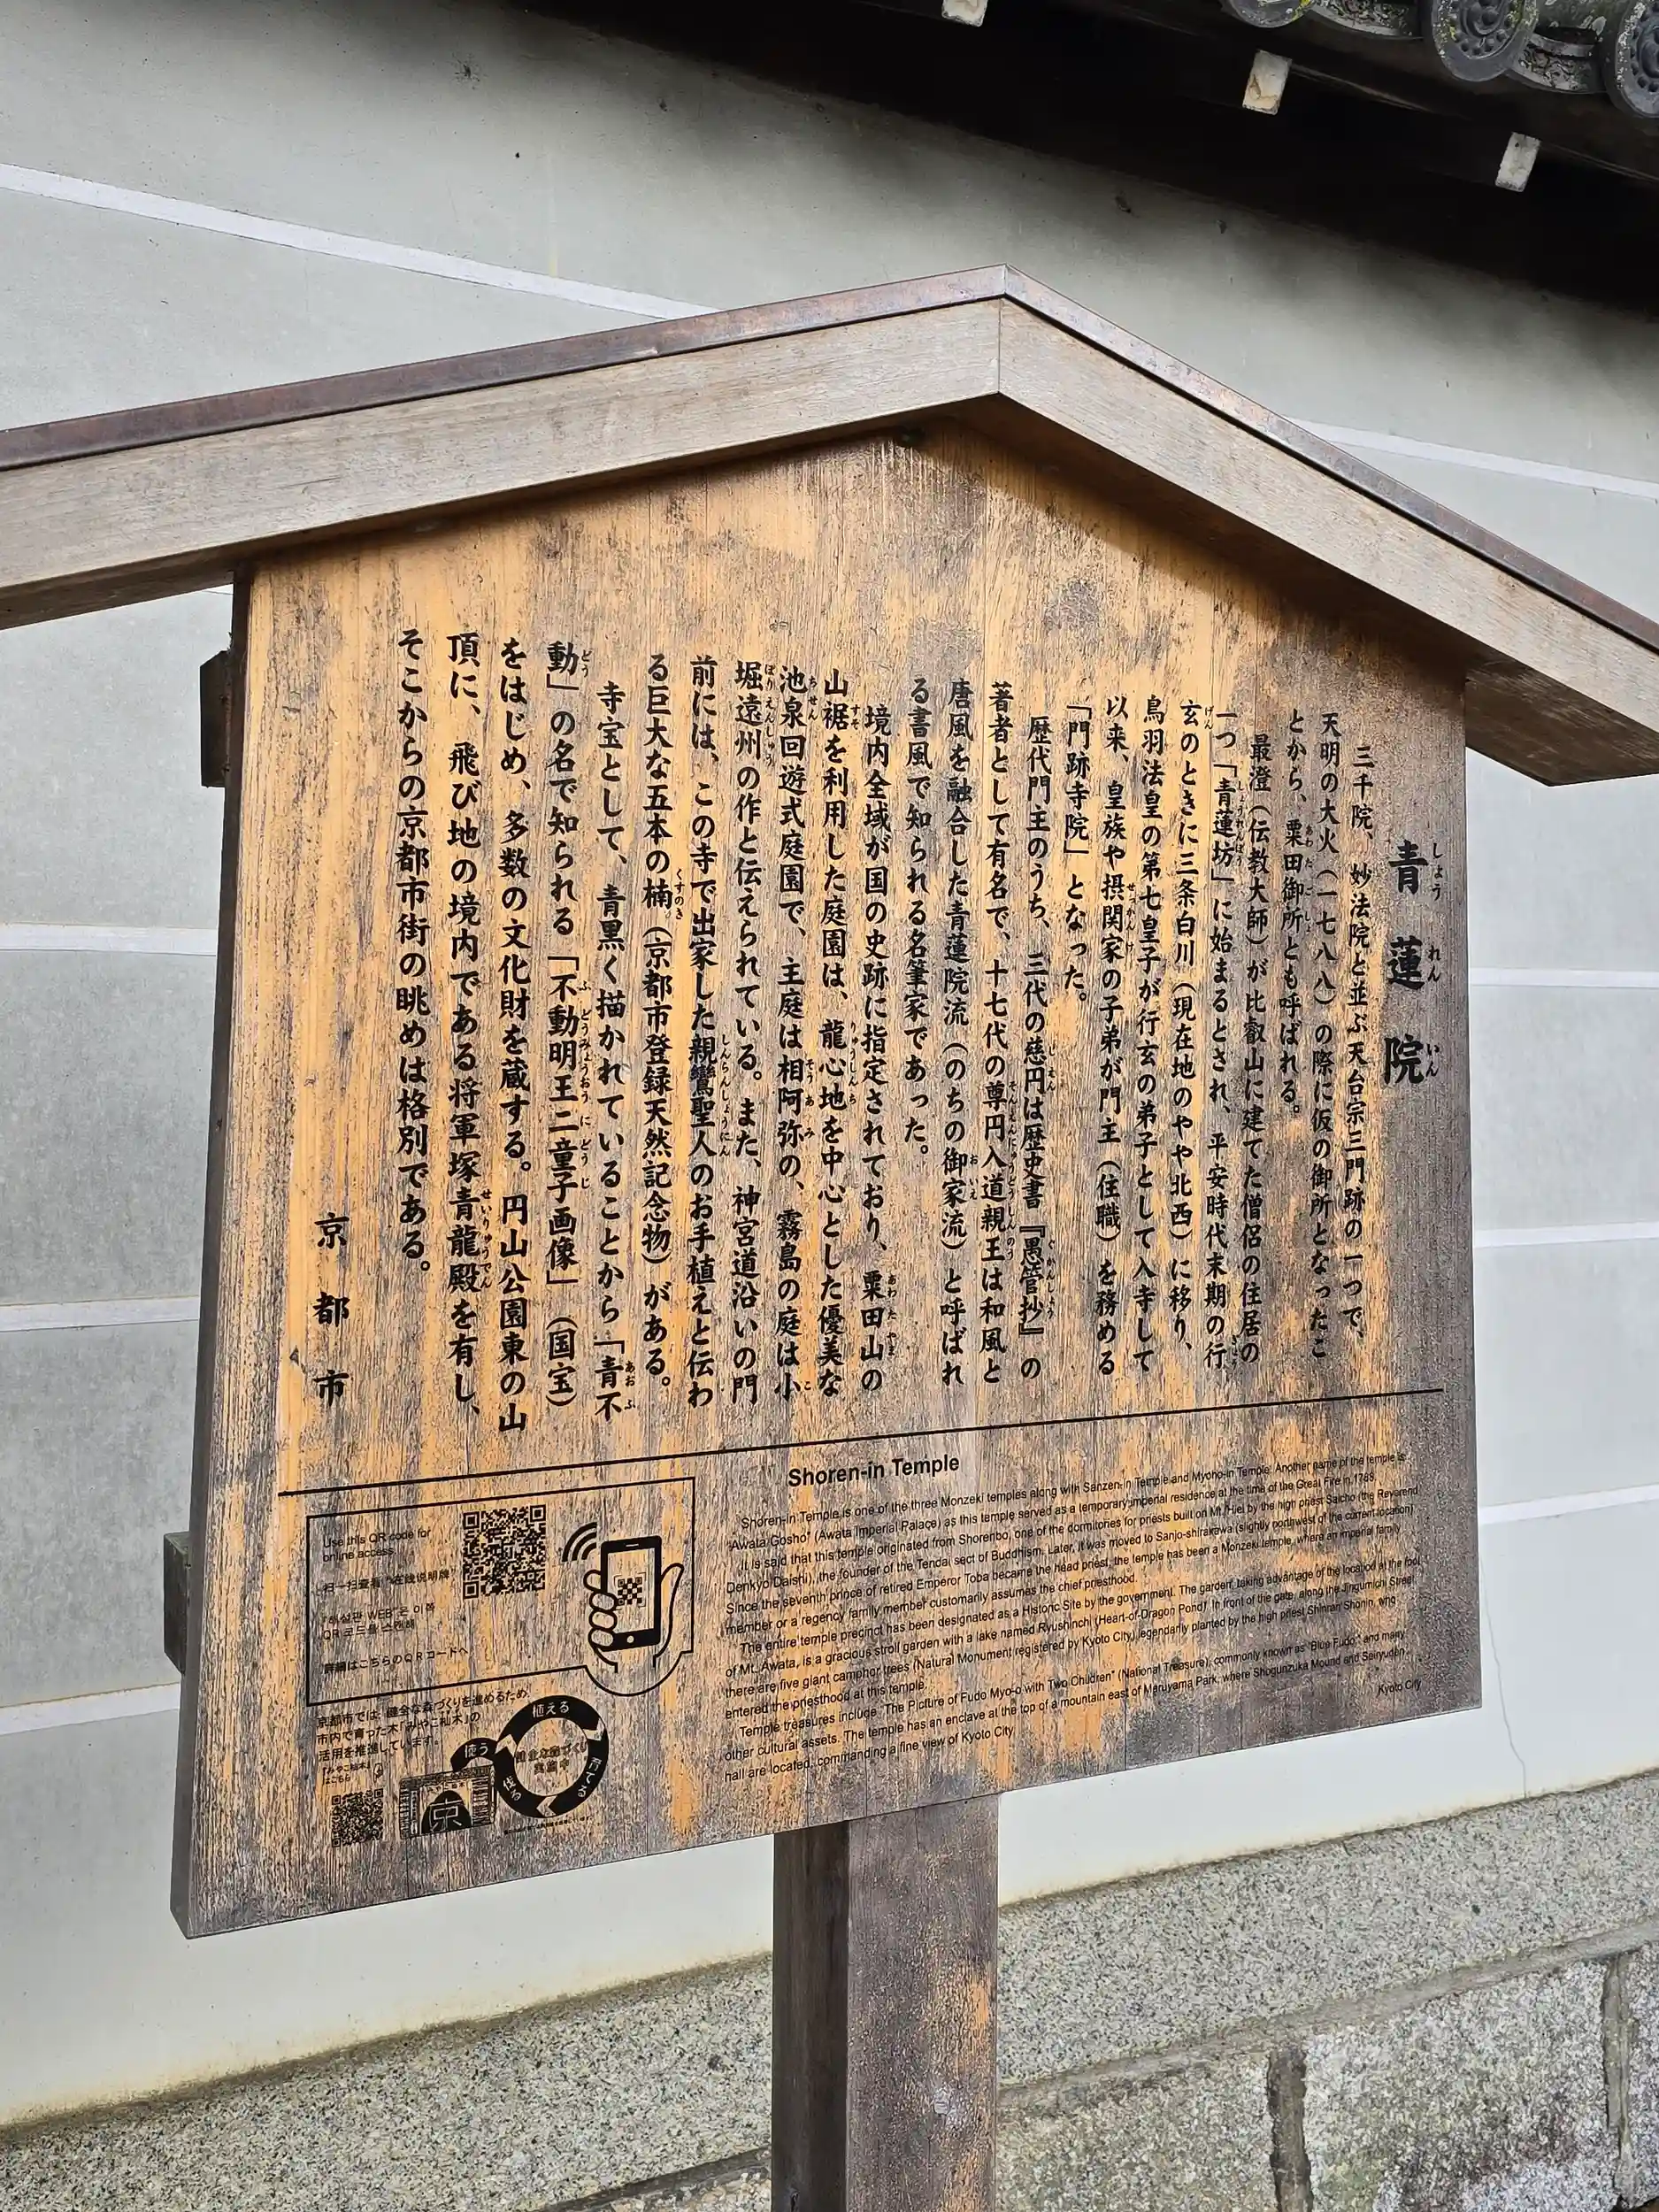 青蓮院
しょうれんいん
三千院、妙法院と並ぶ天台宗三門跡の一つで、
天明の大火（一七八八）の際に仮の御所となったこ
とから、粟田御所とも呼ばれる。
最澄（伝教大師）が比叡山に建てた僧侶の住居の
一つ「青蓮坊」に始まるとされ、平安時代末期の行
玄のときに三条白川（現在地のやや北西）に移り、
鳥羽法皇の第七皇子が行玄の弟子として入寺して
以来、皇族や摂関家の子弟が門主（住職）を務める
「門跡寺院」となった。
歴代門主のうち、三代の慈円は歴史書『愚管抄』の
著者として有名で、十七代の尊円入道親王は和風と
唐風を融合した青蓮院流（のちの御家流）と呼ばれ
る書風で知られる名筆家であった。
境内全域が国の史跡に指定されており、粟田山の
山裾を利用した庭園は、龍心地を中心とした優美な
池泉回遊式庭園で、主庭は相阿弥の、霧島の庭は小
堀遠州の作と伝えられている。また、神宮道沿いの門
前には、この寺で出家した親鸞聖人のお手植えと伝わ
る巨大な五本の楠（京都市登録天然記念物）がある。
寺宝として、青黒く描かれていることから「青不
動」の名で知られる「不動明王二童子画像」（国宝）
をはじめ、多数の文化財を蔵する。円山公園東の山
頂に、飛び地の境内である将軍塚青龍殿を有し、
そこからの京都市街の眺めは格別である。
京都市
Shoren-in Temple
Shoren-in Temple is one of the three Monzeki temples along with Sanzen-in Temple and Myoho-in Temple. Another name of the temple is
"Awata Gosho" (Awata Imperial Palace) as this temple served as a temporary imperial residence at the time of the Great Fire in 1788.
It is said that this temple originated from Shorenbo, one of the dormitories for priests built on Mt. Hiei by the high priest Saicho (the Reverend
Denkyo Daishi), the founder of the Tendai sect of Buddhism. Later, it was moved to Sanjo-shirakawa (slightly northwest of the current location)
Since the seventh prince of retired Emperor Toba became the head priest, the temple has been a Monzeki temple, where an imperial family
member or a regency family member customarily assumes the chief priesthood.
The entire temple precinct has been designated as a Historic Site by the government. The garden, taking advantage of the location at the foot
of Mt. Awata, is a gracious stroll garden with a lake named Ryushinchi (Heart-of-Dragon Pond). In front of the gate, along the Jingumichi Street
there are five giant camphor trees (Natural Monument registered by Kyoto City) legendarily planted by the high priest Shinran Shonin, who
entered the priesthood at this temple.
Temple treasures include "The Picture of Fudo Myo-o with Two Children" (National Treasure), commonly known as "Blue Fudo" and many
other cultural assets. The temple has an enclave at the top of a mountain east of Maruyama Park, where Shogunzuka Mound and Seiryuden
hall are located, commanding a fine view of Kyoto City.
Kyoto City
Use this QR code for
online access.
扫一扫查看"在线说明牌"
"해설판 WEB"은 이 쪽
QR 코드를 스캔해
詳細はこちらのＱＲコードへ
京都市では、健全な森づくりを進めるため、
市内で育った木「みやこ杣木」の
活用を推進しています。
「みやこ杣木」
はこちら
植える
育てる
伐る
使う
健全な森づくり
実施中
京